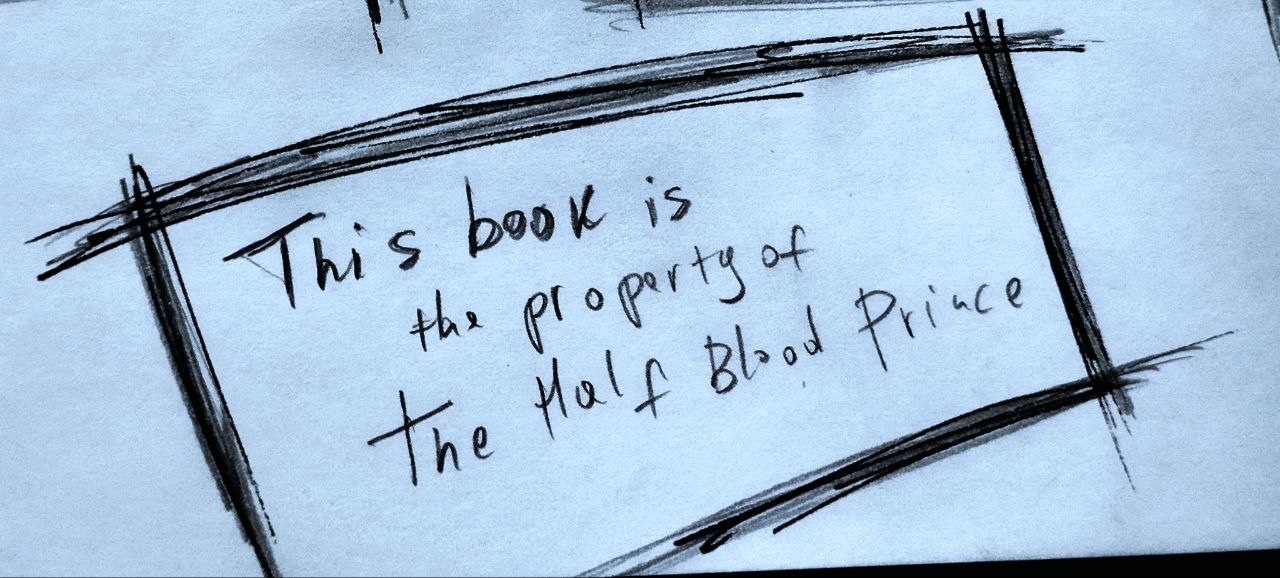 This book is
the property of
The Half Blood Prince